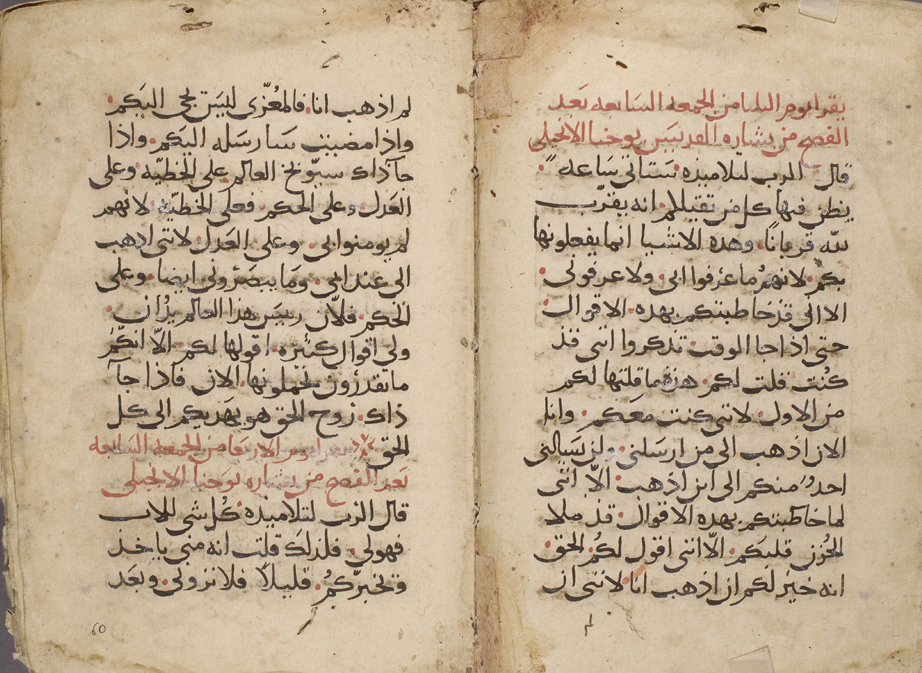 يقرا يوم الثلثا من الجمعه السابعه بعد
الفصح من بشاره القديس يوحنا الانجيلي
قال الرب لتلاميذه ستاتي ساعه
يظن فيها كل من يقتلكم انه يقرب
لله قربانًا وهذه الاشيا انما يفعلونها
بكم لانهم ما عرفوا ابي ولا عرفوني
الا اني قد خاطبتكم بهذه الاقوال
حتى اذا جا الوقت تذكروا انني قد
كنت قلت لكم هذه ما قلتها لكم
من الاول لانني كنت معكم وانا
الان اذهب الى من ارسلني ولن يسالني
احد منكم الى اين اذهب الا انني
لما خاطبتكم بهذه الاقوال قد ملا
الحزن قلبكم الا انني اقول لكم الحق
انه خير لكم ان اذهب انا لانني ان
لم
لم اذهب انا فالمعزي ليس يجي اليكم
واذا مضيت سارسله اليكم واذا
جآ ذاك سيوبخ العالم على الخطيه وعلى
العدل وعلى الحكم فعلى الخطيه لانهم
لم يومنوا بي وعلى العدل لانني اذهب
الى عند ابي وما يبصروني ايضا وعلى
الحكم فلان رييس هذا العالم يدان
ولي اقوال كثيره اقولها لكم الا انكم
ما تقدرون تحملونها الان فاذا جآ
ذاك روح الحق هو يهديكم الى كل
الحق يقرا يوم الاربعا من الجمعه السابعه
بعد الفصح من بشاره يوحنا الانجيلي
قال الرب لتلاميذه كل شي للاب
فهو لي فلذلك قلت انه مني ياخذ
ويخبركم قليلًا فلا تروني وبعد
60